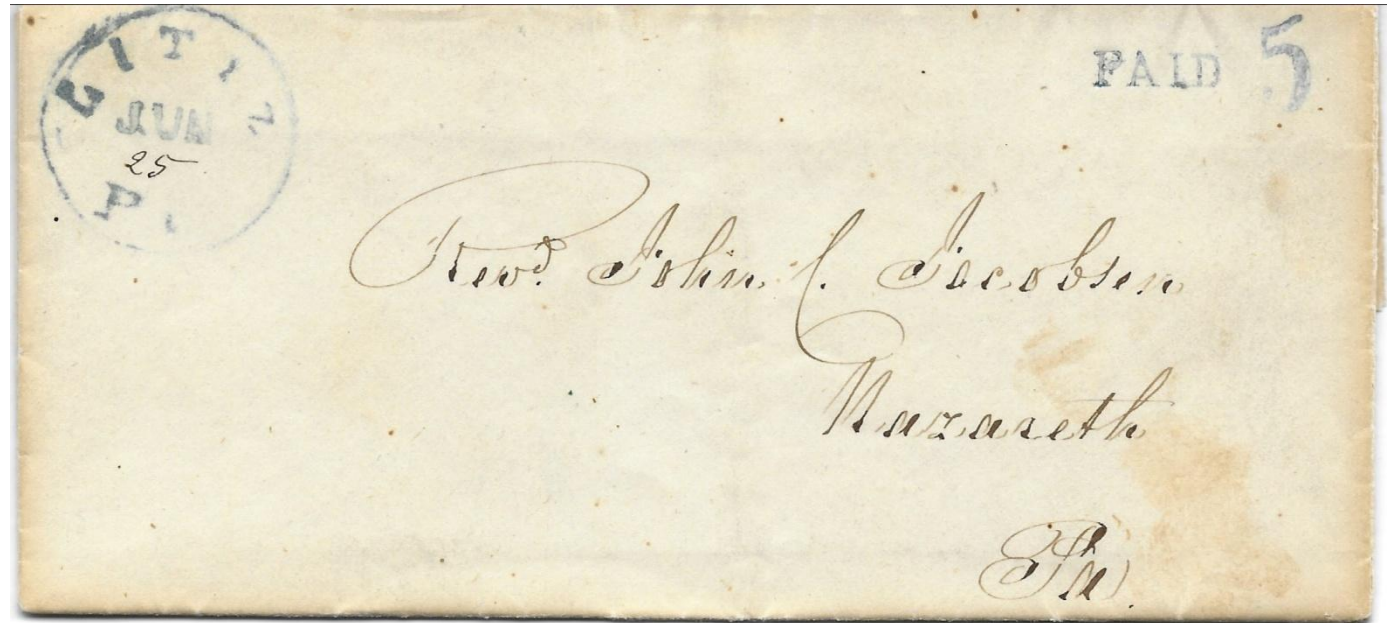 LITIZ
JUN
25
P
PAID 5
Revd. John C. Jacobsen
Nazareth
Pa.